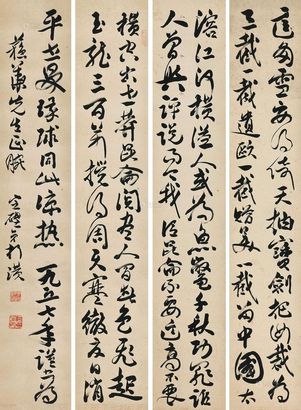 這多雪安得倚天抽寶劍把汝裁為
三截一截遺歐一截贈美一截留中國太
溶江河橫溢人或為魚鱉千秋功罪誰
人曾與評說而今我謂昆侖不要這高不要
橫空出世莽昆侖閱盡人間春色飛起
玉龍三百萬攪得周天寒徹夏日消
平世界環球同此涼熱 一九五七年謹為
先生正腕